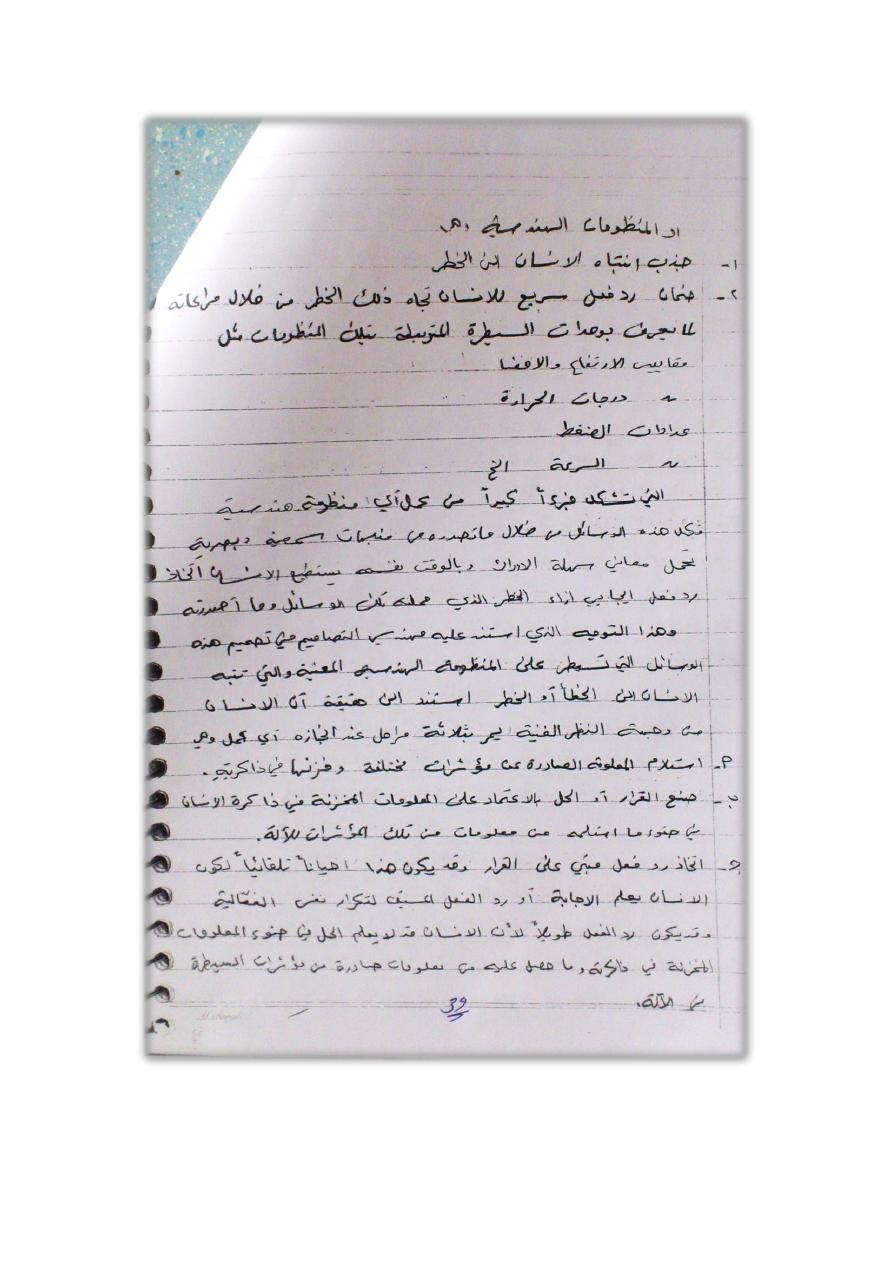 او المنظومات الهندسية وهي
١- جذب انتباه الانسان الى الخطر
٢- ضمان رد فعل سريع للانسان تجاه ذلك الخطر من خلال مراعاته
لما يعرف بوحدات السيطرة المتوسطة بتلك المنظومات مثل
مقاييس الارتفاع والانخفاض
〃 درجات الحرارة
عدادات الضغط
〃 السرعة الخ
التي تشكل جزءاً كبيراً من عمل أي منظومة هندسية
فكل هذه الوسائل من خلال ماتصدره من منبهات سمعية وبصرية
تحمل معاني سهلة الادراك وبالوقت نفسه يستطيع الانسان اتخاذ
رد فعل ايجابي ازاء الخطر الذي تلك الوسائل وما أصدرته
وهذا التوجه الذي استند عليه مهندسي التصاميم في تصميم هذه
الوسائل التي تسيطر على المنظومة الهندسية المعنية والتي تنبه
الانسان الى الخطأ أو الخطر استند الى حقيقة أن الانسان
من وجهة النظر الفنية يمر بثلاثة مراحل عند انجازه أي عمل وهي
أ- استلام المعلومة الصادرة عن مؤشرات مختلفة وخزنها في ذاكرته.
ب- صنع القرار أو الحل بالاعتماد على المعلومات المخزنة في ذاكرة الانسان
في ضوء ما استلمه من معلومات من تلك المؤشرات للآلة.
ج- اتخاذ رد فعل مبني على القرار وقد يكون هذا احياناً تلقائياً لكون
الانسان يعلم الاجابة أو رد الفعل المسبق لتكرار نفس الفعالية
وقد يكون رد الفعل طويلاً لأن الانسان قد لا يعلم الحل في ضوء المعلومات
المخزنة في ذاكرته وما حصل عليه من معلومات صادرة من مؤشرات السيطرة
في الآلة.
39